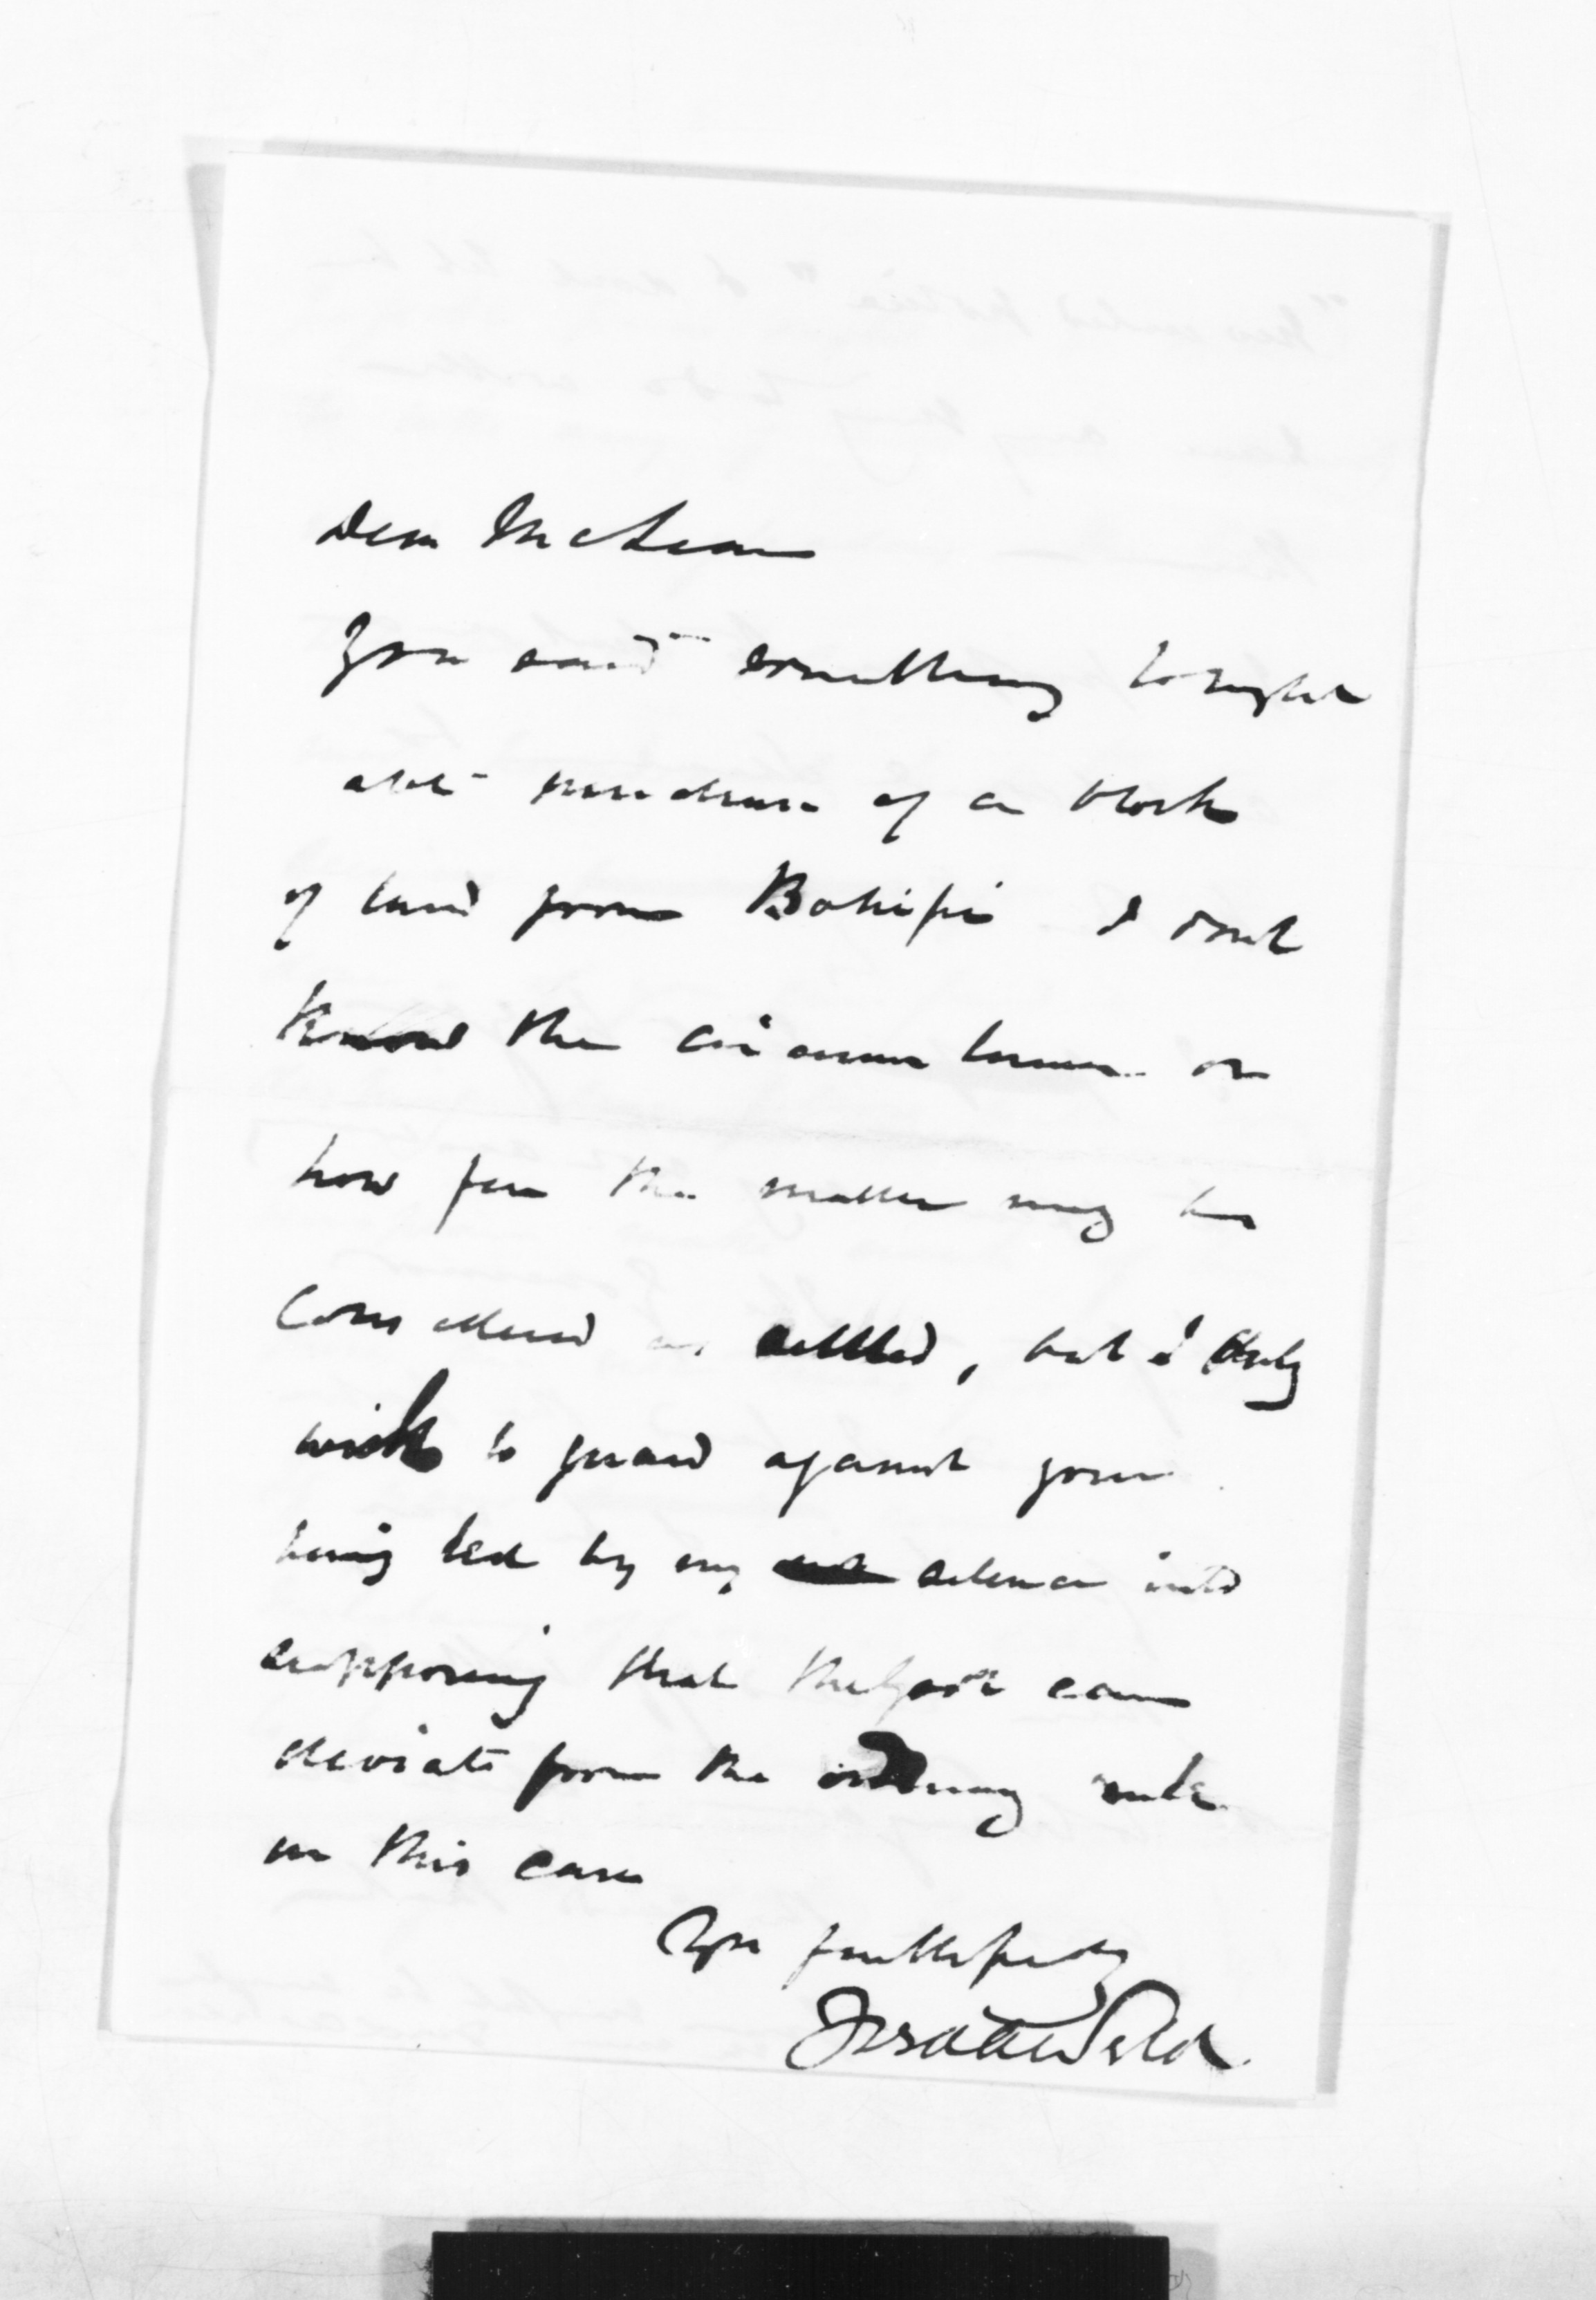 Dear McLean
You said something tonight
abt purchase of a block
of land from I dont
know the circumstances or
how far the matter may be
considered as settled, but I only
wish to guard against your
being led by my silence into
supposing that the Govt can
deviate from the ordinary rule
in this case
Yrs faithfully
Fredk A Weld